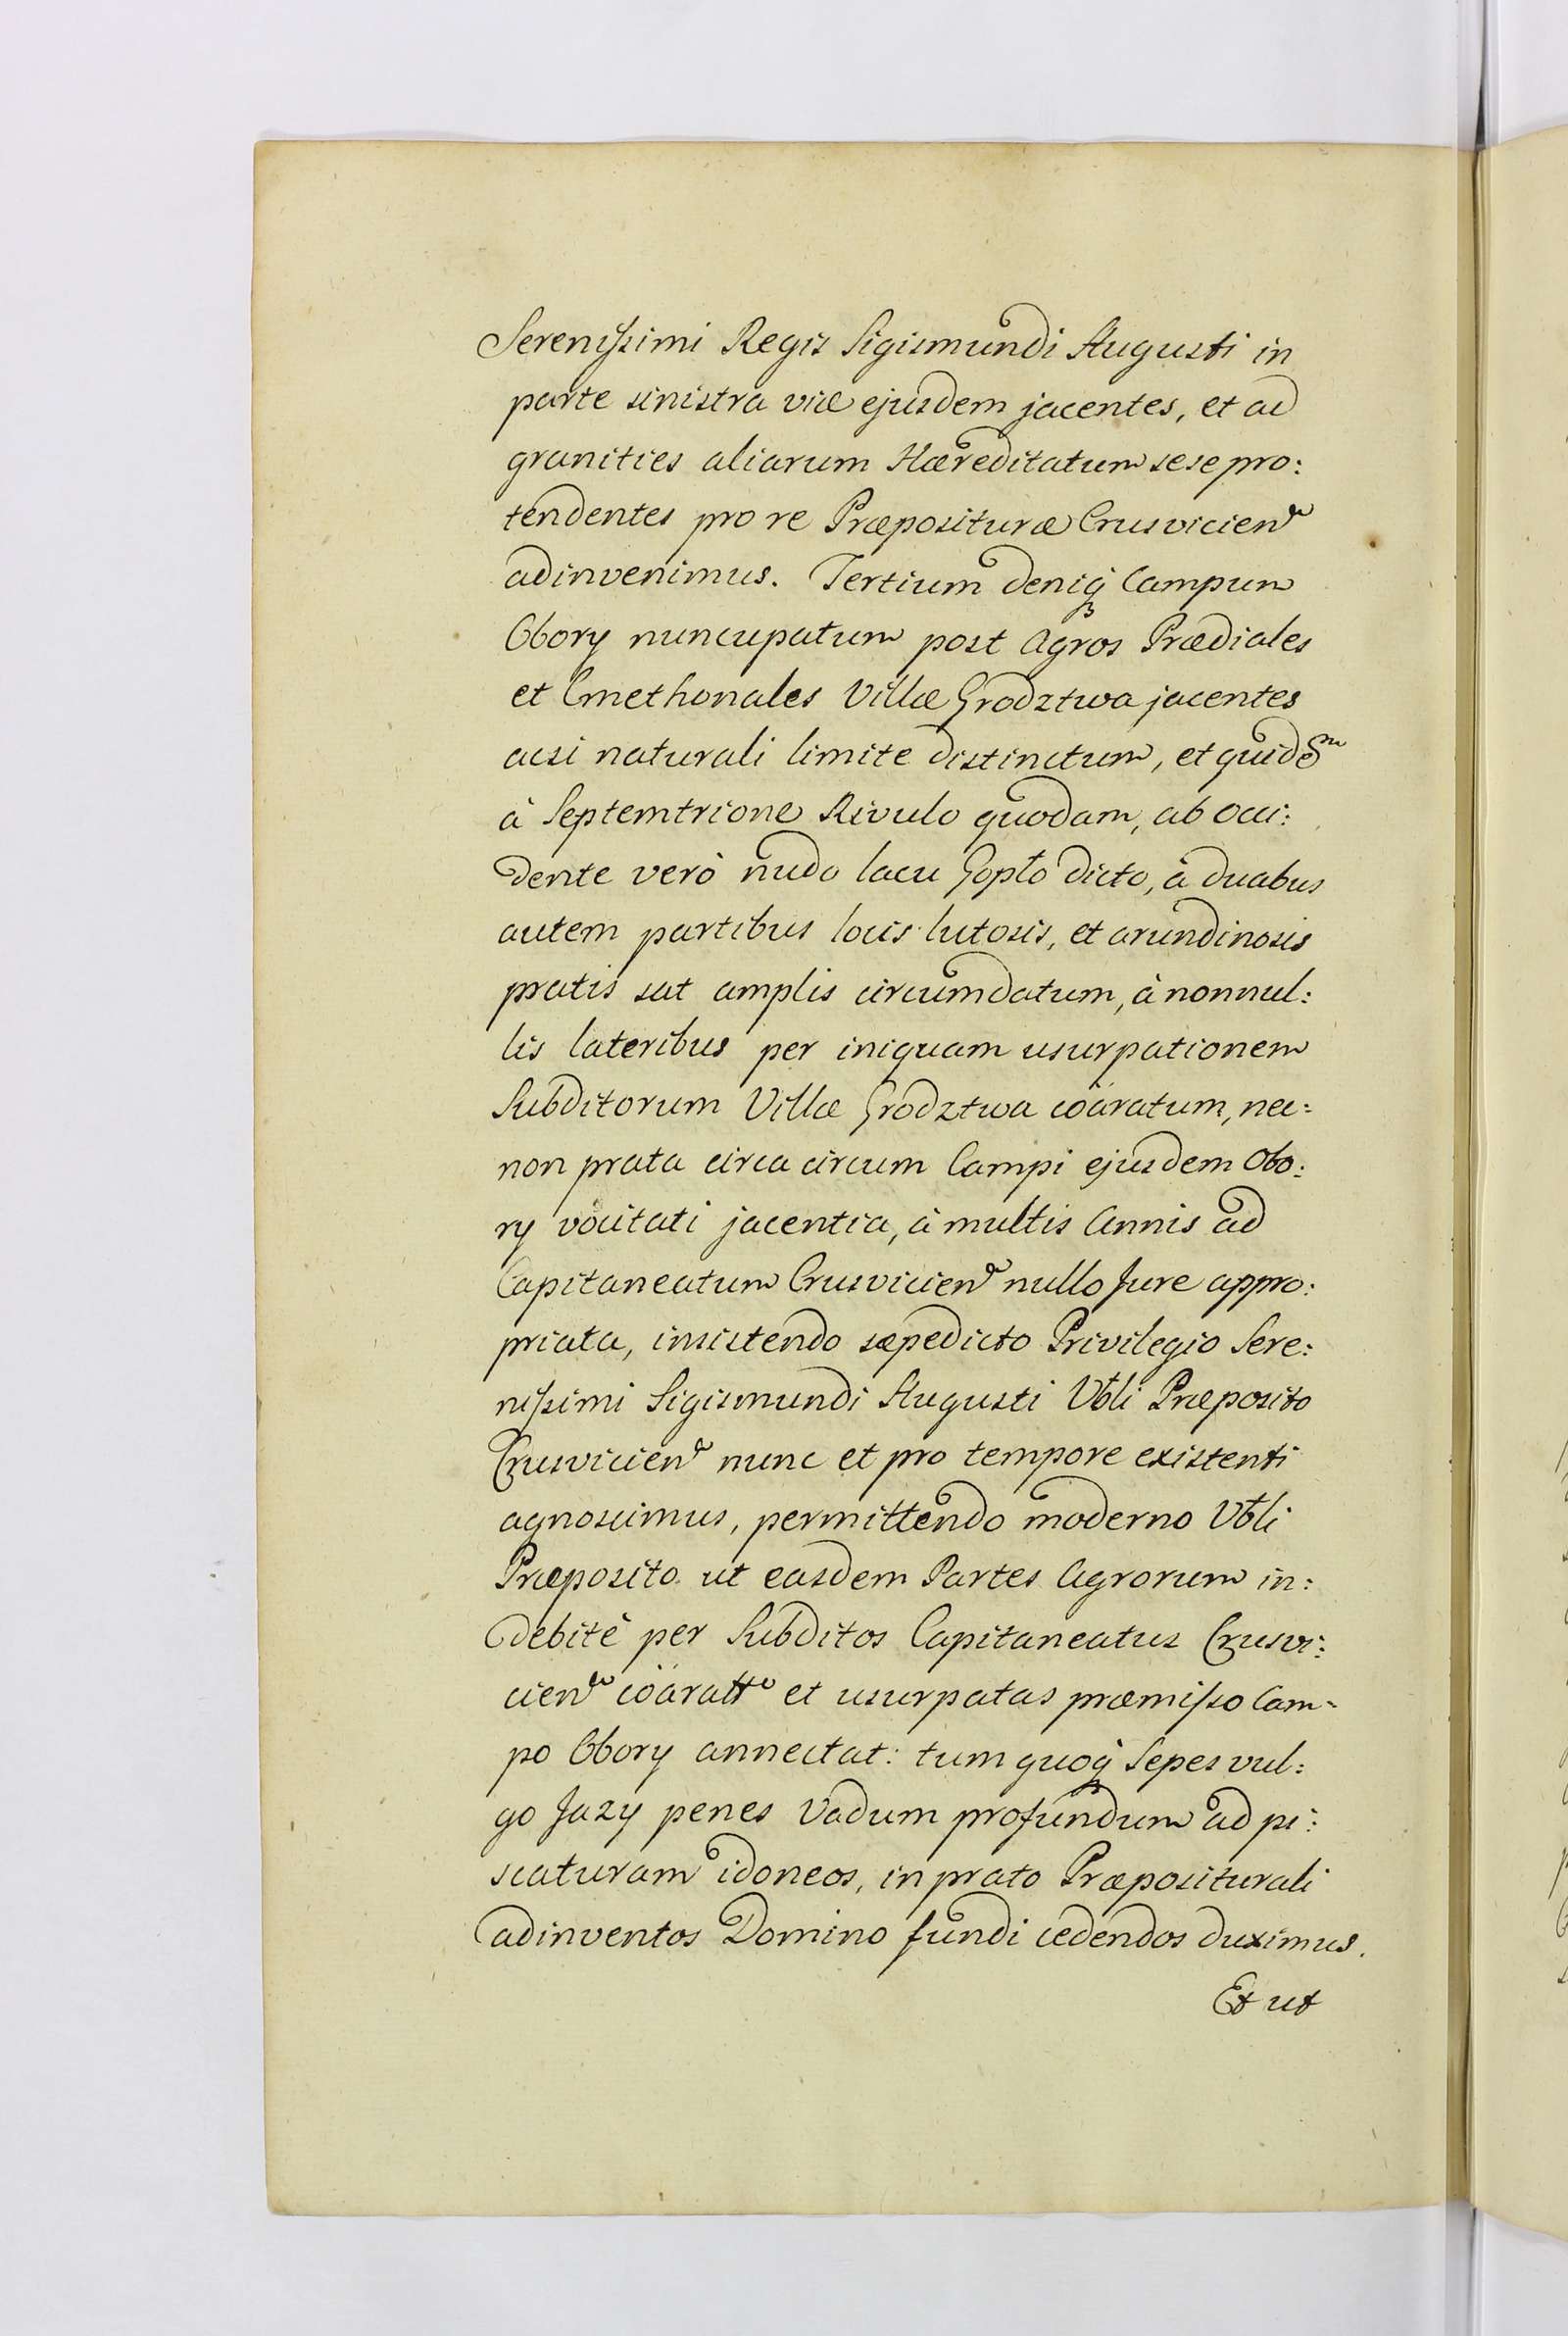 Serenissimi Regis Sigismundi Augusti in
parte sinistra viæ ejusdem jacentes, et ad
granities aliarum Hæreditatum sese pro:
tendentes pro re Præposituræ Crusvicien
adinvenimus. Tertium deniq Campum
Obory nuncupatum post Agros Prædiales
et Cmethonales Villæ Grodztwa jacentes
acsi naturali limite distinctum, et quidem
à Septemtrione Rivulo quodam, ab occi:
dente verò nudo lacu Gopło dicto, à duabus
autem partibus locis lutosis, et arundinosis
pratis sat amplis circumdatum, à nonnul:
lis lateribus per iniquam usurpationem
Subditorum Villæ Grodztwa coäratum, nec=
non prata circa circum Campi ejusdem Obo:
ry vocitati jacentia, à multis Annis ad
Capitaneatum Crusvicien nullo Jure appro:
priata, insistendo sæpedicto Privilegio Sere:
nissimi Sigismundi Augusti Vbli Præposito
Crusvicien nunc et pro tempore existenti
agnoscimus, permittendo moderno Vbli
Præposito ut easdem Partes Agrorum in:
debitè per Subditos Capitaneatus Crusvi:
cien coäratt et usurpatas præmisso Cam=
po Obory annectat: tum quoq Sepes vul:
go Jazy penes Vadum profundum ad pi:
scaturam idoneos, in prato Præpositurali
adinventos Domino fundi cedendos duximus.
Et ut